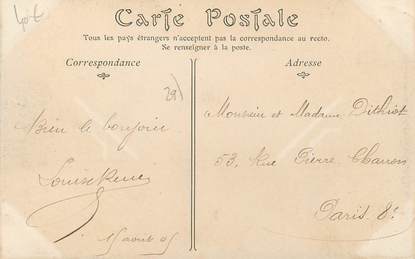 40€
Carte Postale
Tous les pays étrangers n'acceptent pas la correspondance au recto.
Se renseigner à la poste.
Correspondance
Adresse
29)
Bien le bonjour
Louise René
15 avril 05
Monsieur et Madame Dithiot
53, Rue Pierre Charron
Paris 8e